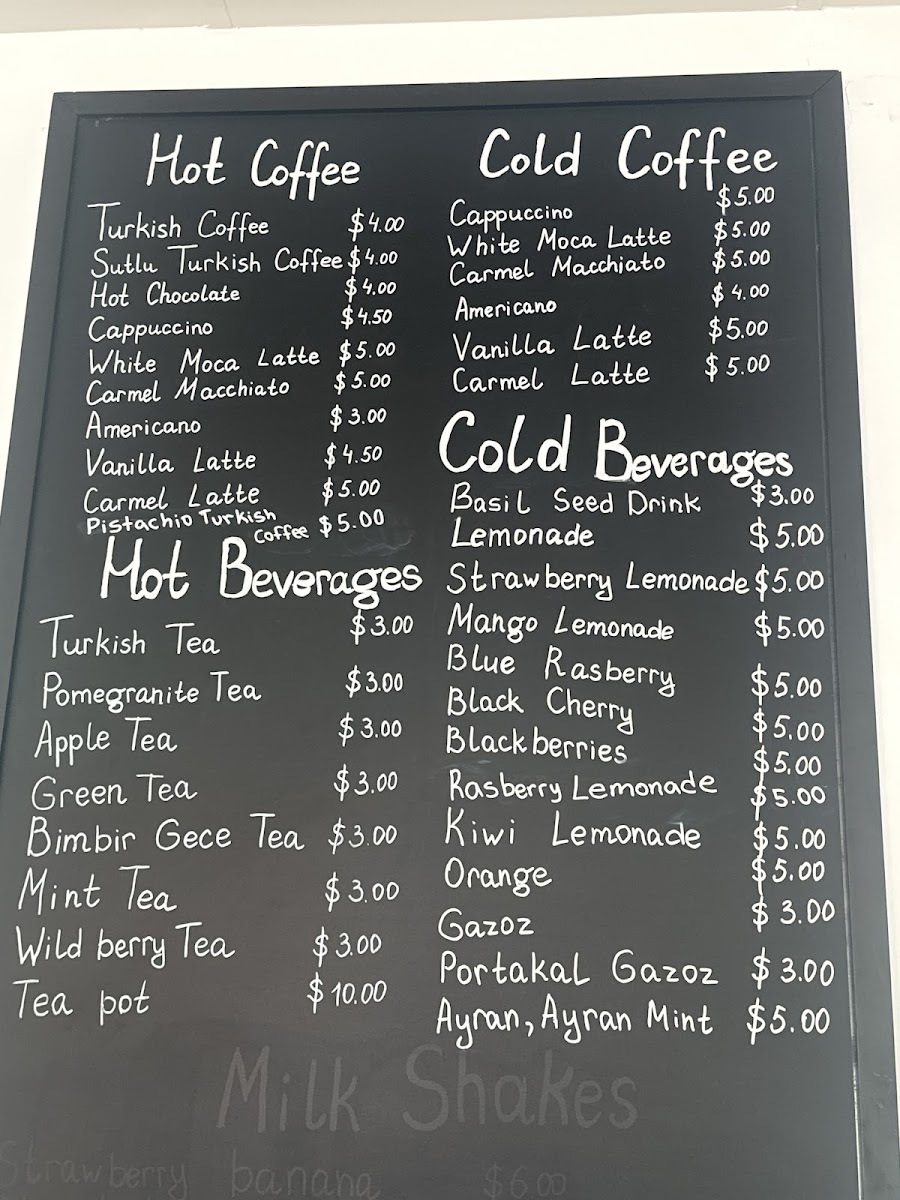 Hot Coffee
Turkish Coffee $4.00
Sutlu Turkish Coffee $4.00
Hot Chocolate $4.00
Cappuccino $4.50
White Moca Latte $5.00
Carmel Macchiato $5.00
Americano $3.00
Vanilla Latte $4.50
Carmel Latte $5.00
Pistachio Turkish
Coffee $5.00
Hot Beverages
Turkish Tea $3.00
Pomegranite Tea $3.00
Apple Tea $3.00
Green Tea $3.00
Bimbir Gece Tea $3.00
Mint Tea $3.00
Wild berry Tea $3.00
Tea pot $10.00
Cold Coffee
Cappuccino $5.00
White Moca Latte $5.00
Carmel Macchiato $5.00
Americano $4.00
Vanilla Latte $5.00
Carmel Latte $5.00
Cold Beverages
Basil Seed Drink $3.00
Lemonade $5.00
Strawberry Lemonade $5.00
Mango Lemonade $5.00
Blue Rasberry $5.00
Black Cherry $5.00
Blackberries $5.00
Rasberry Lemonade $5.00
Kiwi Lemonade $5.00
Orange $5.00
Gazoz $3.00
Portakal Gazoz $3.00
Ayran, Ayran Mint $5.00
Milk Shakes
Strawberry banana $6.00